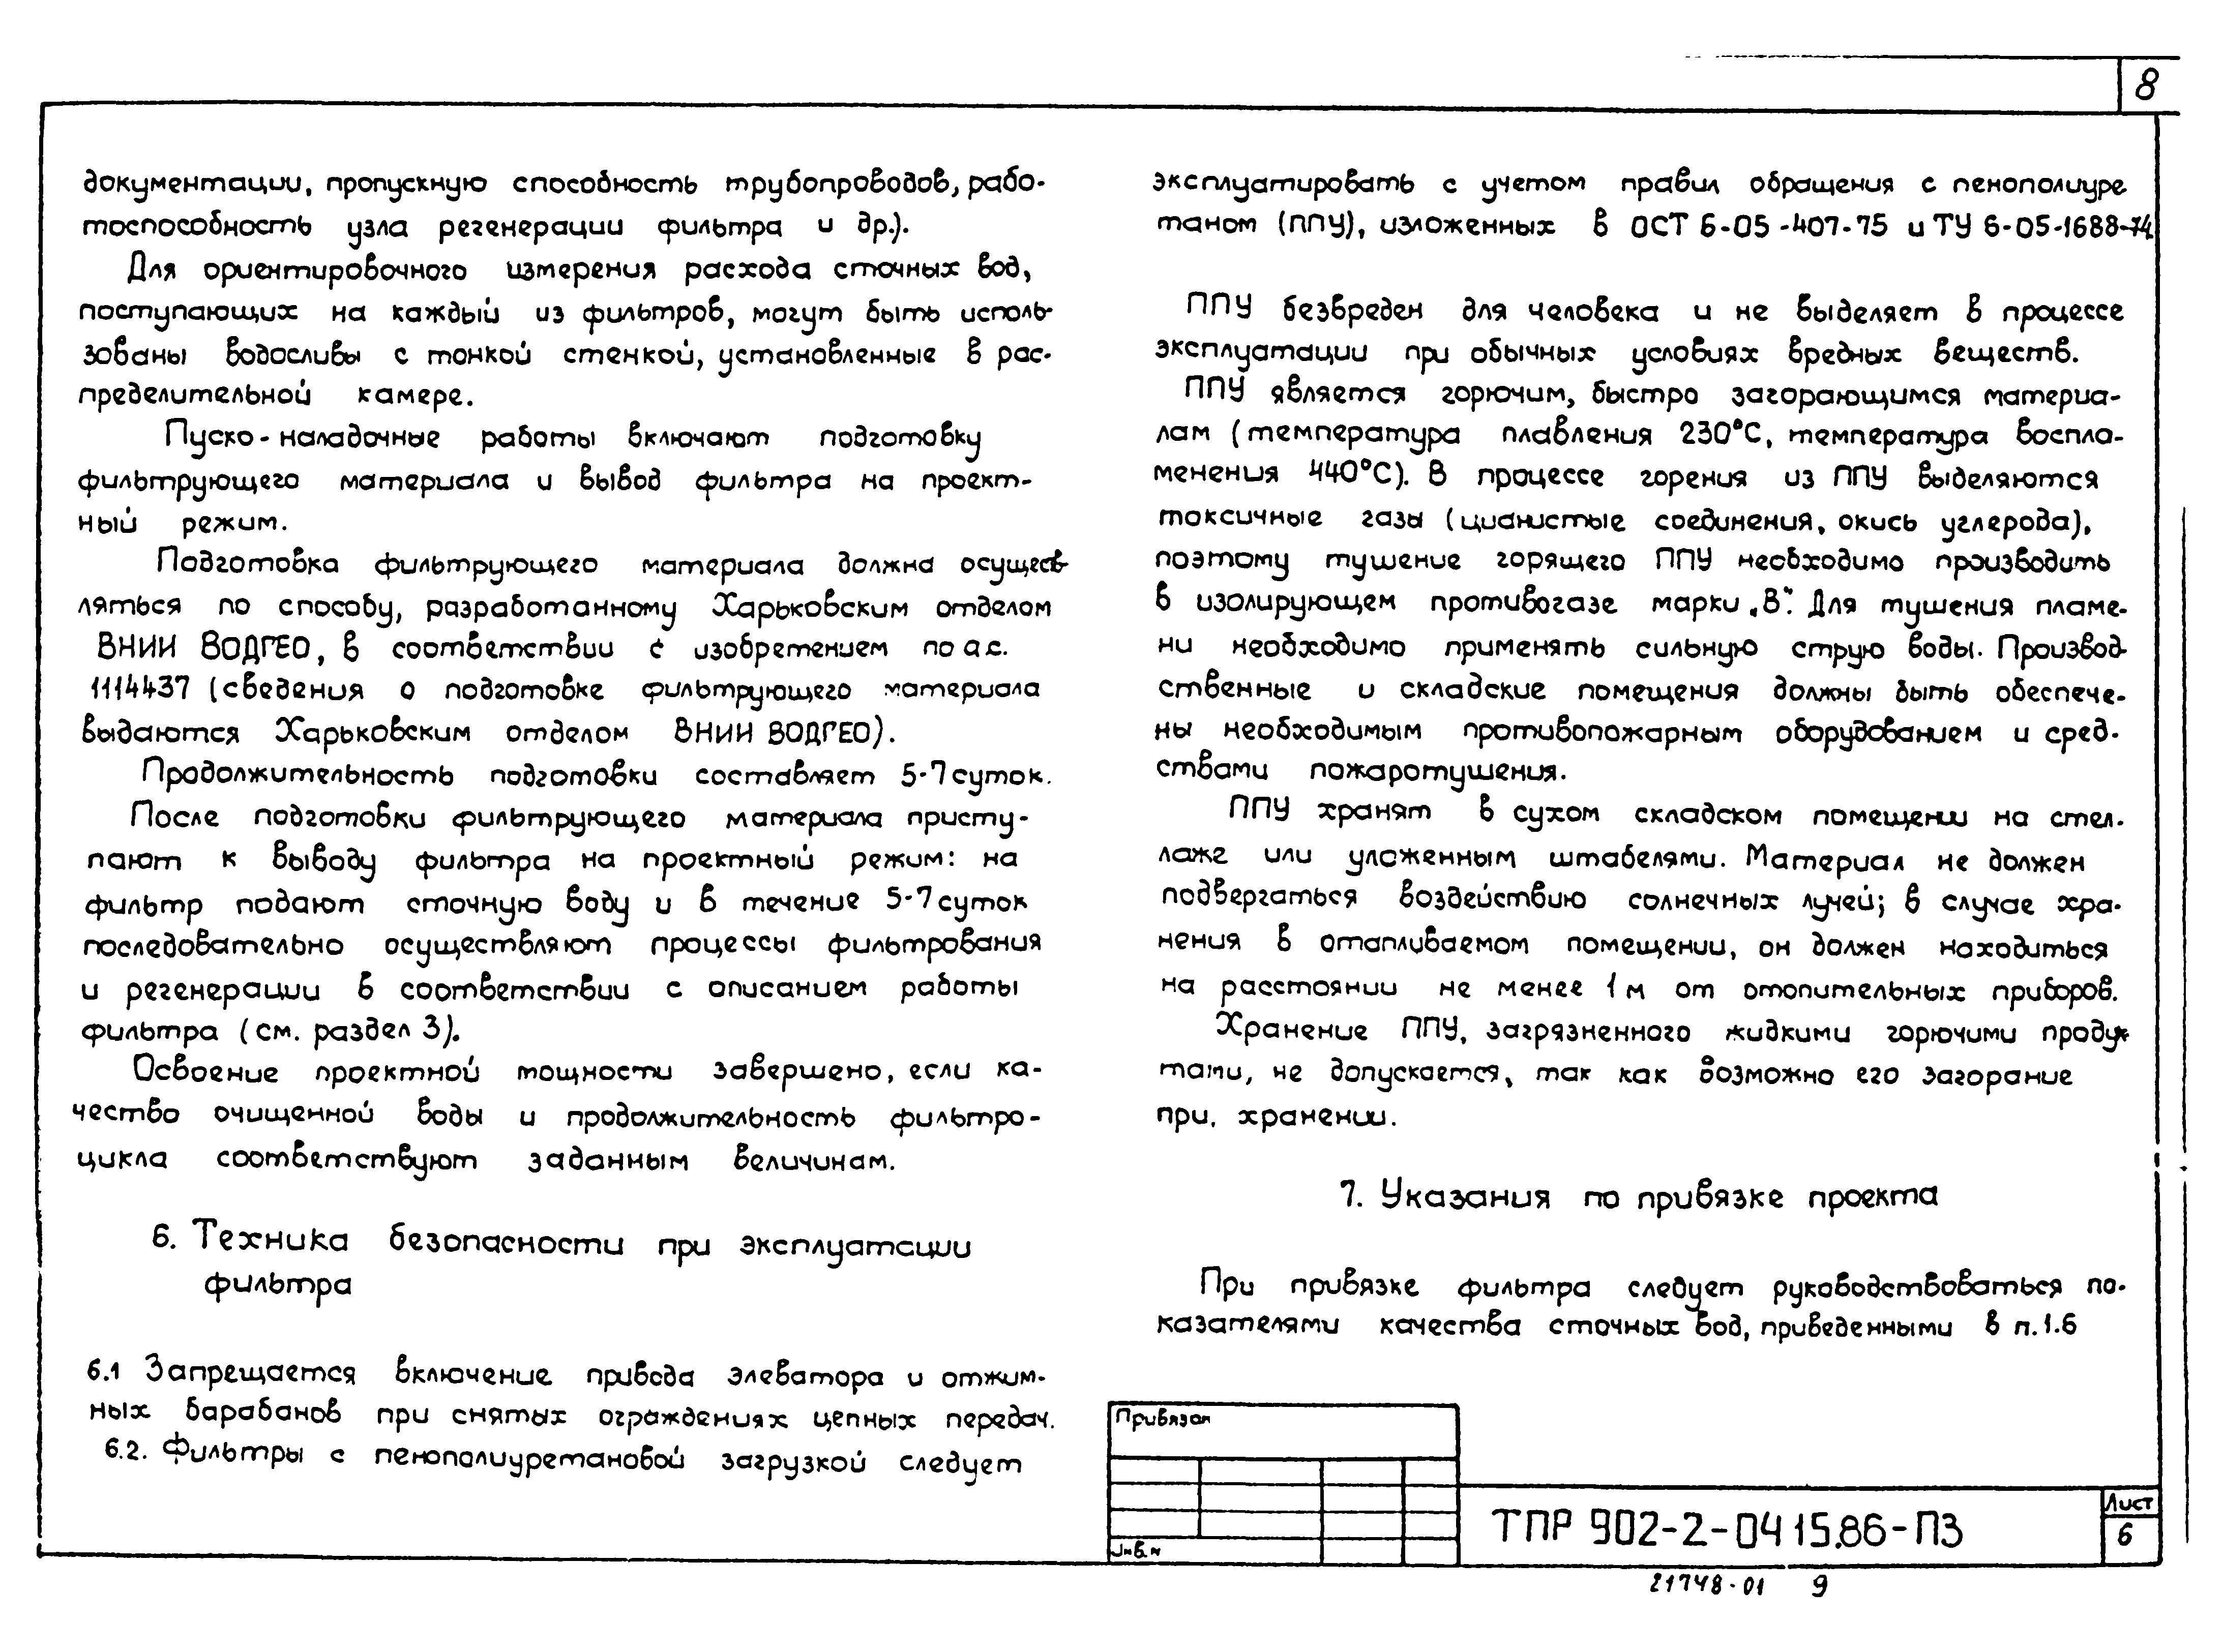 8
документации, пропускную способность трубопроводов, рабо-
тоспособность узла регенерации фильтра и др.).
Для ориентировочного измерения расхода сточных вод,
поступающих на каждый из фильтров, могут быть исполь-
зованы водосливы с тонкой стенкой, установленные в рас-
пределительной камере.
Пуско-наладочные работы включают подготовку
фильтрующего материала и вывод фильтра на проект-
ный режим.
Подготовка фильтрующего материала должна осущест-
вляться по способу, разработанному Харьковским отделом
ВНИИ ВОДГЕО, в соответствии с изобретением по а.с.
1114437 (сведения о подготовке фильтрующего материала
выдаются Харьковским отделом ВНИИ ВОДГЕО).
Продолжительность подготовки составляет 5-7 суток.
После подготовки фильтрующего материала присту-
пают к выводу фильтра на проектный режим: на
фильтр подают сточную воду и в течение 5-7 суток
последовательно осуществляют процессы фильтрования
и регенерации в соответствии с описанием работы
фильтра (см. раздел 3).
Освоение проектной мощности завершено, если ка-
чество очищенной воды и продолжительность фильтро-
цикла соответствуют заданным величинам.
6. Техника безопасности при эксплуатации
фильтра
6.1 Запрещается включение привода элеватора и отжим-
ных барабанов при снятых ограждениях цепных передач.
6.2. Фильтры с пенополиуретановой загрузкой следует
эксплуатировать с учетом правил обращения с пенополиуре
таном (ППУ), изложенных в ОСТ 6-05-407-75 и ТУ 6-05-1688-74
ППУ безвреден для человека и не выделяет в процессе
эксплуатации при обычных условиях вредных веществ.
ППУ является горючим, быстро загорающимся материа-
лам (температура плавления 230°С, температура воспла-
менения 440°С). В процессе горения из ППУ выделяются
токсичные газы (цианистые соединения, окись углерода),
поэтому тушение горящего ППУ необходимо производить
в изолирующем противогазе марки „В". Для тушения пламе-
ни необходимо применять сильную струю воды. Производ-
ственные и складские помещения должны быть обеспече-
ны необходимым противопожарным оборудованием и сред-
ствами пожаротушения.
ППУ хранят в сухом складском помещении на стел-
лаже или уложенным штабелями. Материал не должен
подвергаться воздействию солнечных лучей; в случае хра-
нения в отапливаемом помещении, он должен находиться
на расстоянии не менее 1 м от отопительных приборов.
Хранение ППУ, загрязненного жидкими горючими продук
тами, не допускается, так как возможно его загорание
при. хранении.
7. Указания по привязке проекта
При привязке фильтра следует руководствоваться по-
казателями качества сточных вод, приведенными в п.1.6
Привязан
Инв.н
ТПР 902-2-0415.86-ПЗ
Лист
6
21748-01 9